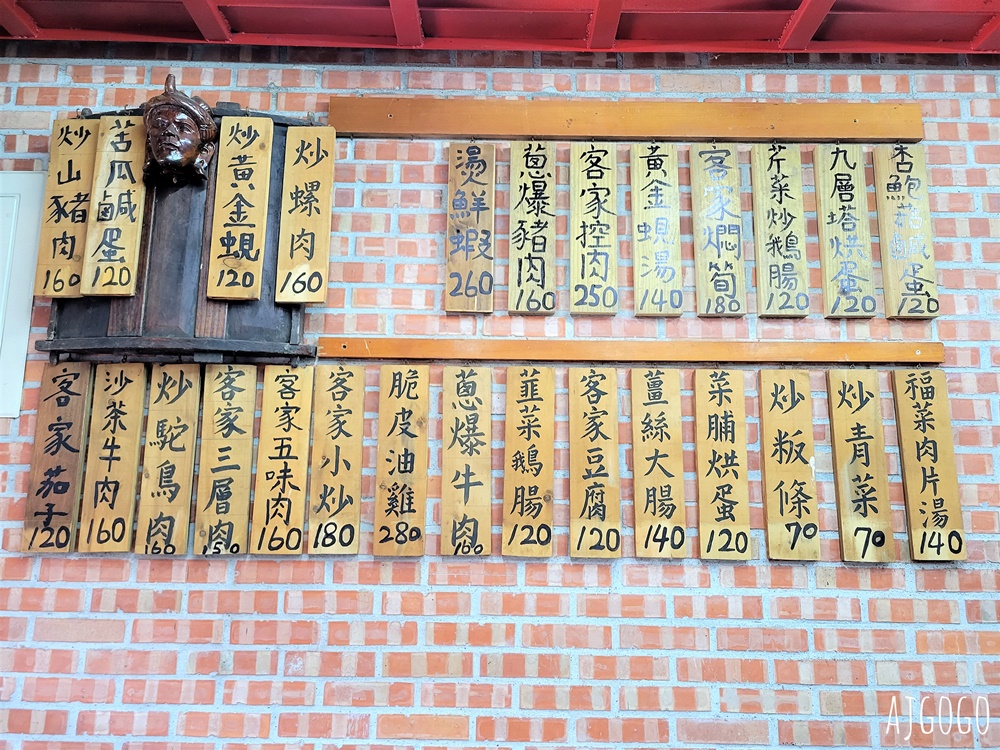 炒山豬肉 160
苦瓜鹹蛋 120
炒黃金蜆 120
炒螺肉 160
燙鮮蝦 260
蔥爆豬肉 160
客家控肉 250
黃金蜆湯 140
客家燜筍 180
芹菜炒鵝腸 120
九層塔烘蛋 120
杏鮑菇鹹蛋 120
客家茄子 120
沙茶牛肉 160
炒駝鳥肉 160
客家三層肉 150
客家五味肉 160
客家小炒 180
脆皮油雞 280
蔥爆牛肉 160
韮菜鵝腸 120
客家豆腐 120
薑絲大腸 140
菜脯烘蛋 120
炒粄條 70
炒青菜 70
福菜肉片湯 140
AJGOGO